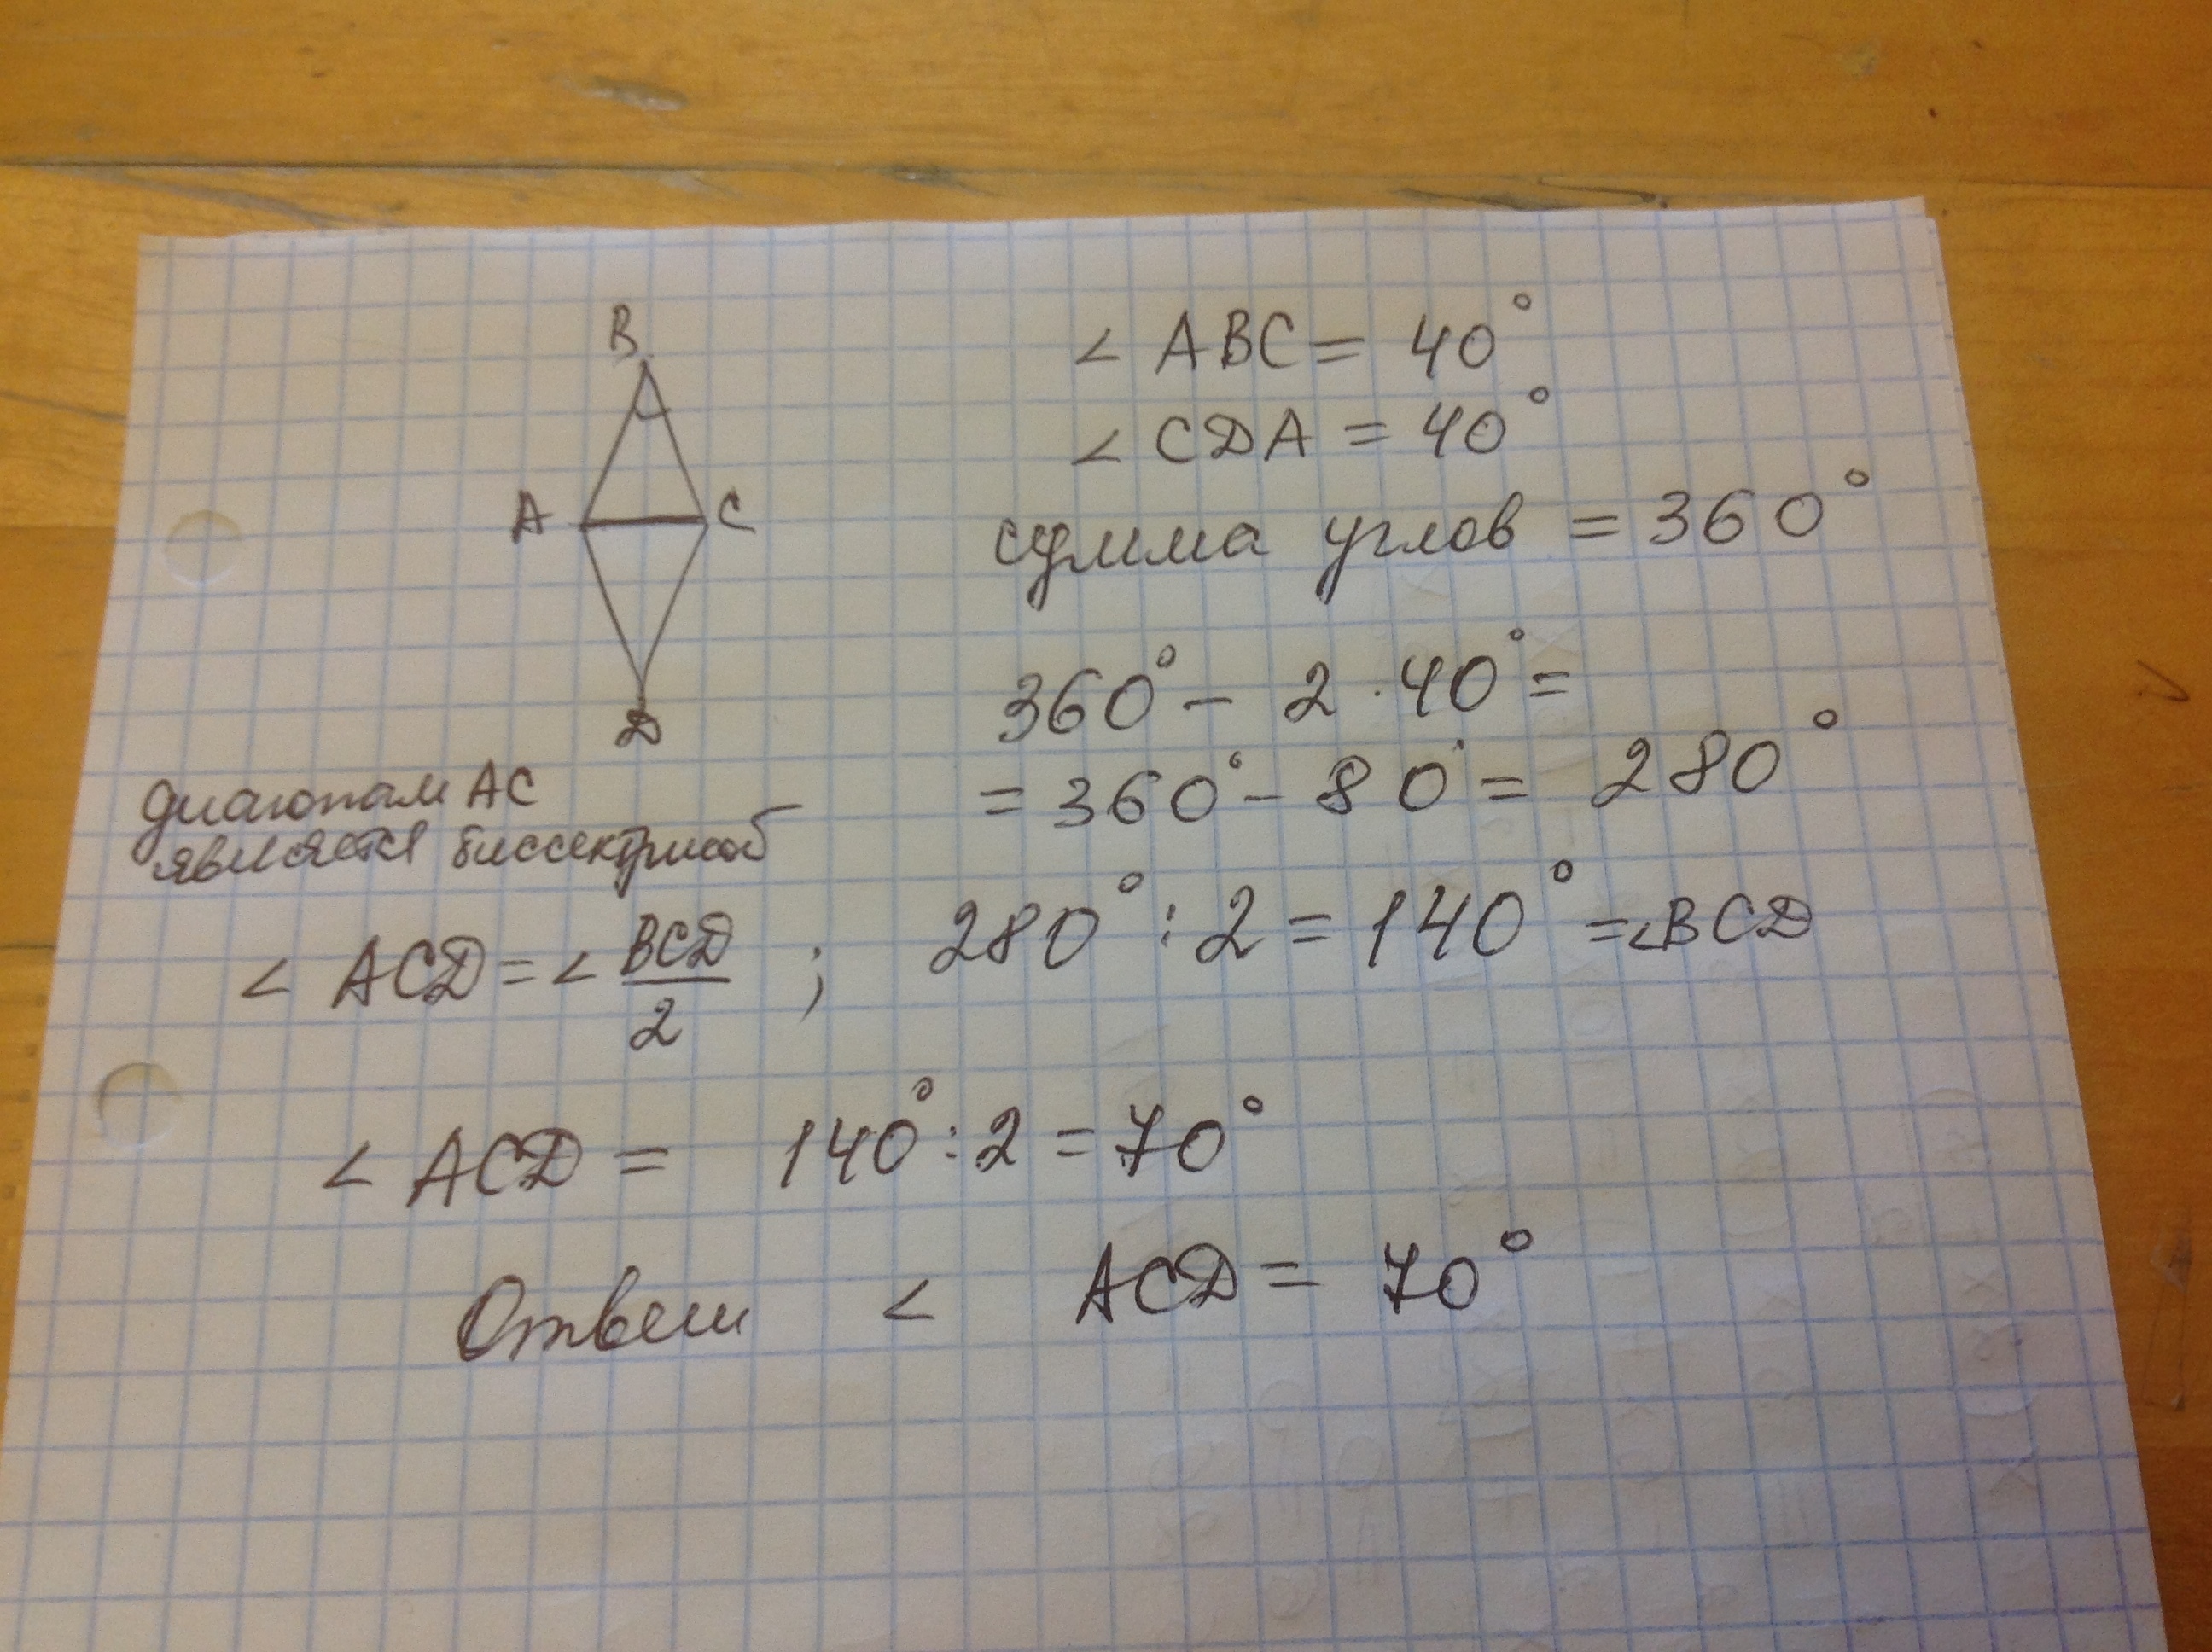 B
A C
D
< ABC = 40°
< CDA = 40°
сумма углов = 360°
360° - 2 · 40° =
= 360° - 80° = 280°
диагонал AC
является биссектрисой
< ACD = < BCD/2 ; 280° : 2 = 140° = <BCD
< ACD = 140° : 2 = 70°
Ответ < ACD = 70°